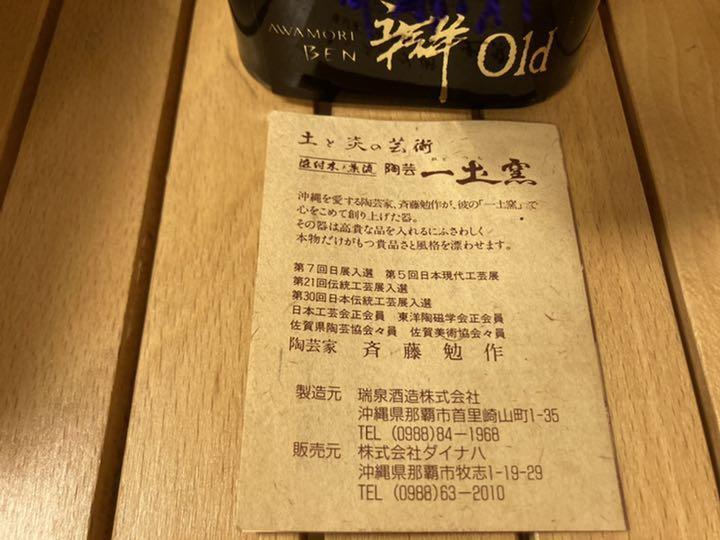 AWAMORI
BEN
Old
土と炎の芸術
陶芸 一土窯
沖縄を愛する陶芸家、斉藤勉作が、彼の「一土窯」で
心をこめて創り上げた器。
その器は高貴な品を入れるにふさわしく
本物だけがもつ貴品さと風格を漂わせます。
第7回日展入選 第5回日本現代工芸展
第21回伝統工芸展入選
第30回日本伝統工芸展入選
日本工芸会正会員 東洋陶磁学会正会員
佐賀県陶芸協会々員 佐賀美術協会々員
陶芸家 斉藤勉作
製造元 瑞泉酒造株式会社
沖縄県那覇市首里崎山町1-35
TEL (0988)84-1968
販売元 株式会社ダイナハ
沖縄県那覇市牧志1-19-29
TEL (0988)63-2010